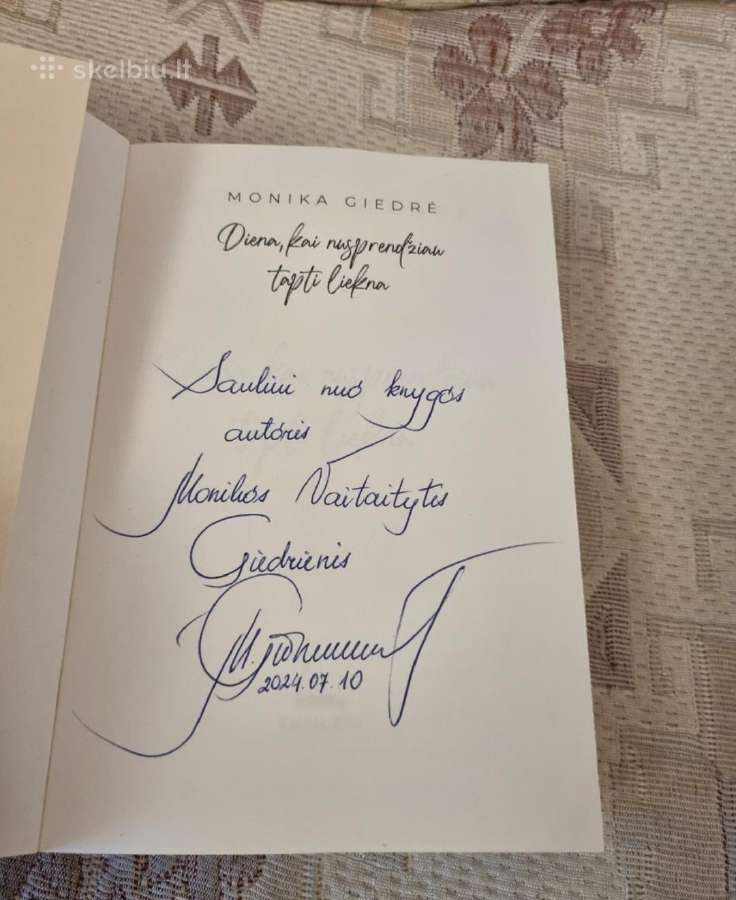 skelbiu.lt
MONIKA GIEDRĖ
Diena, kai nusprendžiau
tapti liekna
Sauliui nuo knygos
autorės
Monikos Vaitaitytės
Giedrienės
2024.07.10